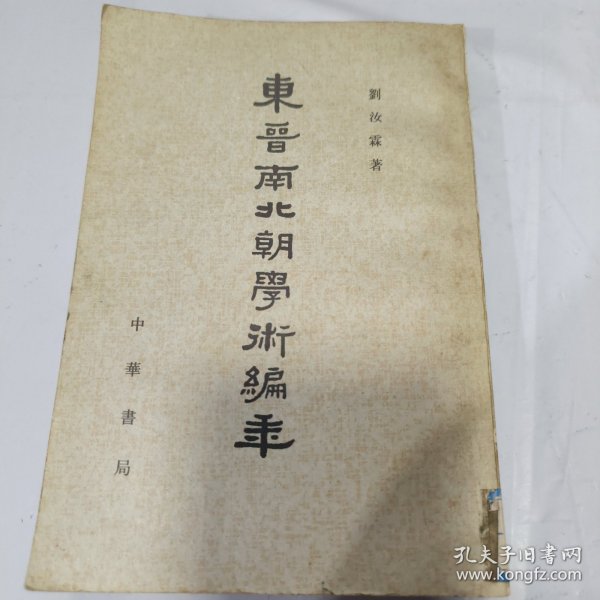 劉汝霖著
東晉南北朝學術編年
中華書局
孔夫子旧书网
www.kongfz.com